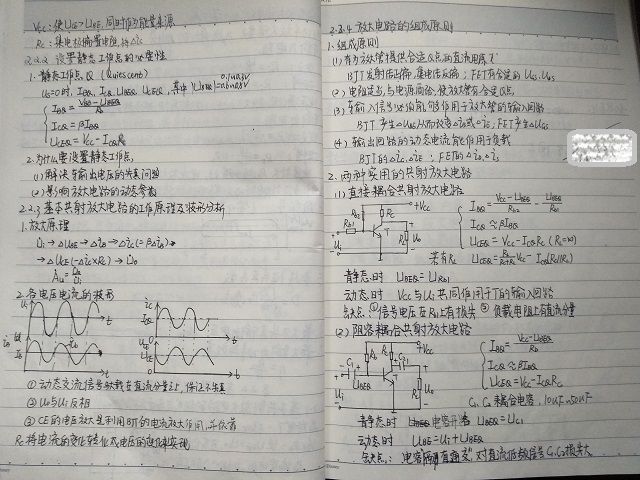 Vcc:使UCE>UBE,同时作为能量来源
Rc:集电极偏置电阻,将Δic
2.2.2 设置静态工作点的必要性
1.静态工作点 Q (Quiescent)
Ui=0时, IBQ, ICQ, UBEQ, UCEQ, 其中|UBEQ|=
IBQ = (VBB-UBEQ)/Rb
ICQ = βIBQ
UCEQ = Vcc - ICQRc
2.为什么要设置静态工作点
(1)解决输出电压的失真问题
(2)影响放大电路的动态参数
2.2.3 基本共射放大电路的工作原理及波形分析
1.放大原理
U̇i→ΔUBE→Δib→Δic(=βΔib)→
→ΔUCE(-Δic×Rc)→U̇o
Au = U̇o/U̇i
2.各电压电流的波形
Ui
t
ic
ICQ
t
ib
IBQ
t
UCE
UCEQ
t
①动态交流信号驮载在直流分量之上,保证不失真
②Uo与Ui反相
③CE的电压放大是利用BJT的电流放大作用,并依靠
Rc将电流的变化转化成电压的变化来实现
2.2.4 放大电路的组成原则
1.组成原则
(1)为放大管提供合适Q点的直流电源
BJT发射结正偏,集电结反偏;FET有合适的UGS、UDS
(2)电阻适当,与电源配合,使放大管有合适Q点
(3)输入信号必须能够作用于放大管的输入回路
BJT产生ΔUBE从而改变Δib或Δic,FET产生ΔUGS
(4)输出回路的动态电流能作用于负载
BJT的Δic、Δie;FET的Δid、Δis
2.两种实用的共射放大电路
(1)直接耦合共射放大电路
Rb2
Rc
+Vcc
Rb1
T
Ui
RL
Uo
IBQ = (Vcc-UBEQ)/Rb2 - UBEQ/Rb1
ICQ = βIBQ
UCEQ = Vcc-ICQRc (RL=∞)
若有RL UCEQ = RL/(Rc+RL) Vcc - ICQ(Rc//RL)
静态时 UBEQ=URb1
动态时 Vcc与Ui共同作用于T的输入回路
缺点:①信号电压在Rb1上有损失 ②负载电阻上有直流分量
(2)阻容耦合共射放大电路
Rb
Rc
+Vcc
C1
C2
UBEQ
T
Ui
RL
Uo
IBQ = (Vcc-UBEQ)/Rb
ICQ≈βIBQ
UCEQ=Vcc-ICQRc
C1、C2 耦合电容,10μF~50μF
静态时 电容开路 UBEQ=UC1
动态时 UBE=Ui+UBEQ
缺点:电容“隔直通交”,对直流低频信号C1、C2损失大